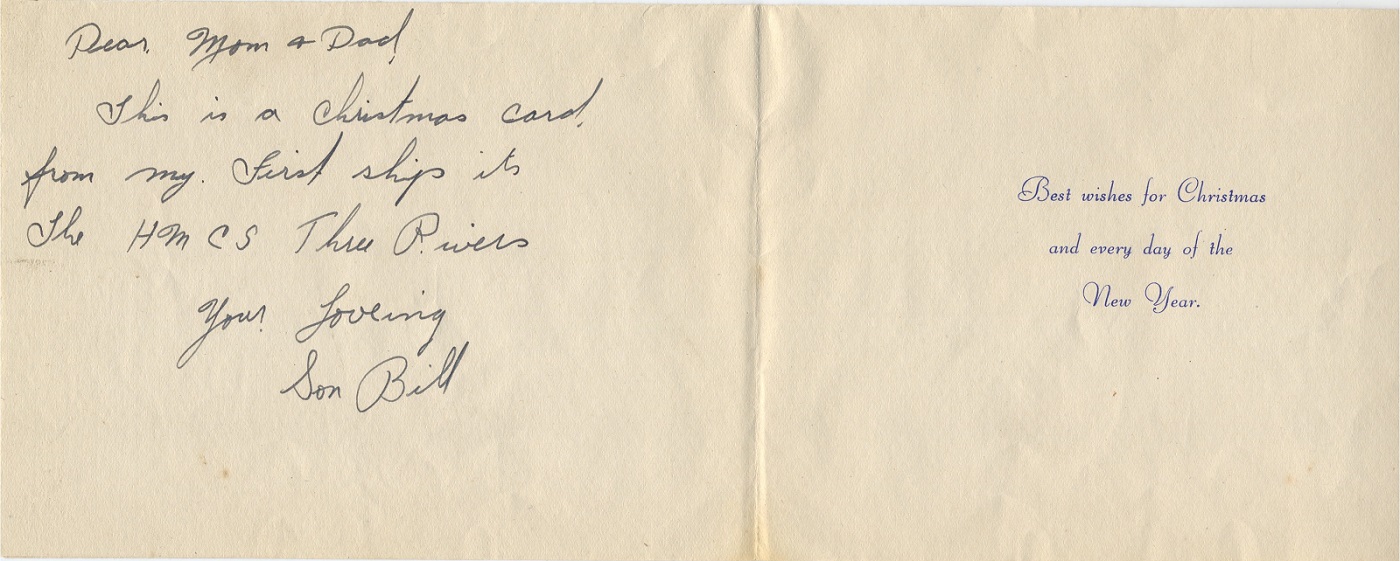 Dear. Mom & Dad,
This is a Christmas card,
from my. First ship its
The HMCS Three Rivers
Your Loveing
Son Bill
Best wishes for Christmas
and every day of the
New Year.